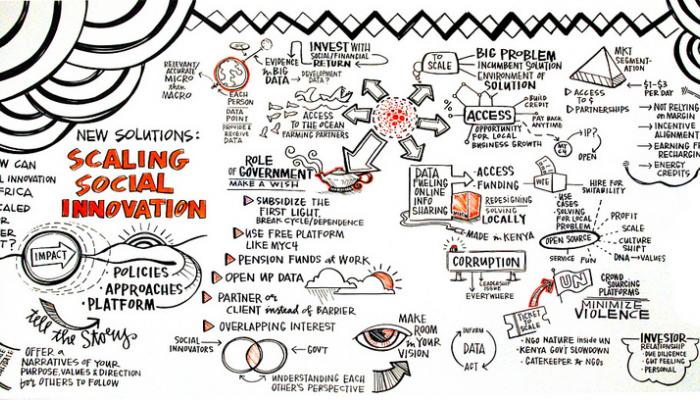 NEW SOLUTIONS:
SCALING
SOCIAL
INNOVATION
W CAN
L INNOVATION
FRICA
CALED
R
ER
T?
IMPACT
POLICIES
APPROACHES
PLATFORM
tell the Story
OFFER A
NARRATIVES OF YOUR
PURPOSE, VALUES & DIRECTION
for OTHERS TO FOLLOW
RELEVANT/
ACCURATE
MICRO
then
MACRO
EACH
PERSON
DATA
POINT
PROVIDE &
RECEIVE
DATA
EVIDENCE
in BIG
DATA
DEVELOPMENT
DATA?
INVEST WITH
SOCIAL/FINANCIAL
RETURN
ACCESS
TO THE OCEAN
FARMING PARTNERS
ROLE
of GOVERNMENT
MAKE A WISH
SUBSIDIZE THE
FIRST LIGHT,
BREAK CYCLE/DEPENDENCE
USE FREE PLATFORM
LIKE MYC4
PENSION FUNDS at WORK
OPEN UP DATA
PARTNER or
CLIENT instead of BARRIER
OVERLAPPING INTEREST
SOCIAL
INNOVATORS
GOV'T
UNDERSTANDING EACH
OTHER'S PERSPECTIVE
MAKE
ROOM
in YOUR
VISION
TO
SCALE
BIG PROBLEM
INCUMBENT SOLUTION
ENVIRONMENT OF
SOLUTION
%
ACCESS
BUILD
CREDIT
PAY BACK
ANYTIME
OPPORTUNITY
FOR LOCAL
BUSINESS GROWTH
MY
C4
IP?
OPEN
MKT
SEGMENT-
ATION
ACCESS
TO $
PARTNERSHIPS
$1-$3
PER DAY
NOT RELYING
on MARGIN
INCENTIVE
ALIGNMENT
EARNING F
RECHARGIN
ENERGY
CREDITS
DATA
FUELING
ONLINE
INFO
SHARING
ACCESS
FUNDING
REDESIGNING
SOLVING
LOCALLY
MADE in KENYA
CORRUPTION
LEADERSHIP
ISSUE
EVERYWHERE
USE
CASES
SOLVING
FOR LOCAL
PROBLEM
HIRE FOR
SUITABILITY
OPEN SOURCE
PROFIT
SCALE
CULTURE
SHIFT
DNA→VALUES
SERVICE
FUN
UN
CROWD
SOURCING
PLATFORMS
MINIMIZE
VIOLENCE
TICKET
to
SCALE
INFORM
DATA
ACT
NGO NATURE inside UN
KENYA GOV'T SLOWDOWN
GATEKEEPER to NGOs
INVESTOR
RELATIONSHIP
DUE DILIGENCE
GUT FEELING
PERSONAL